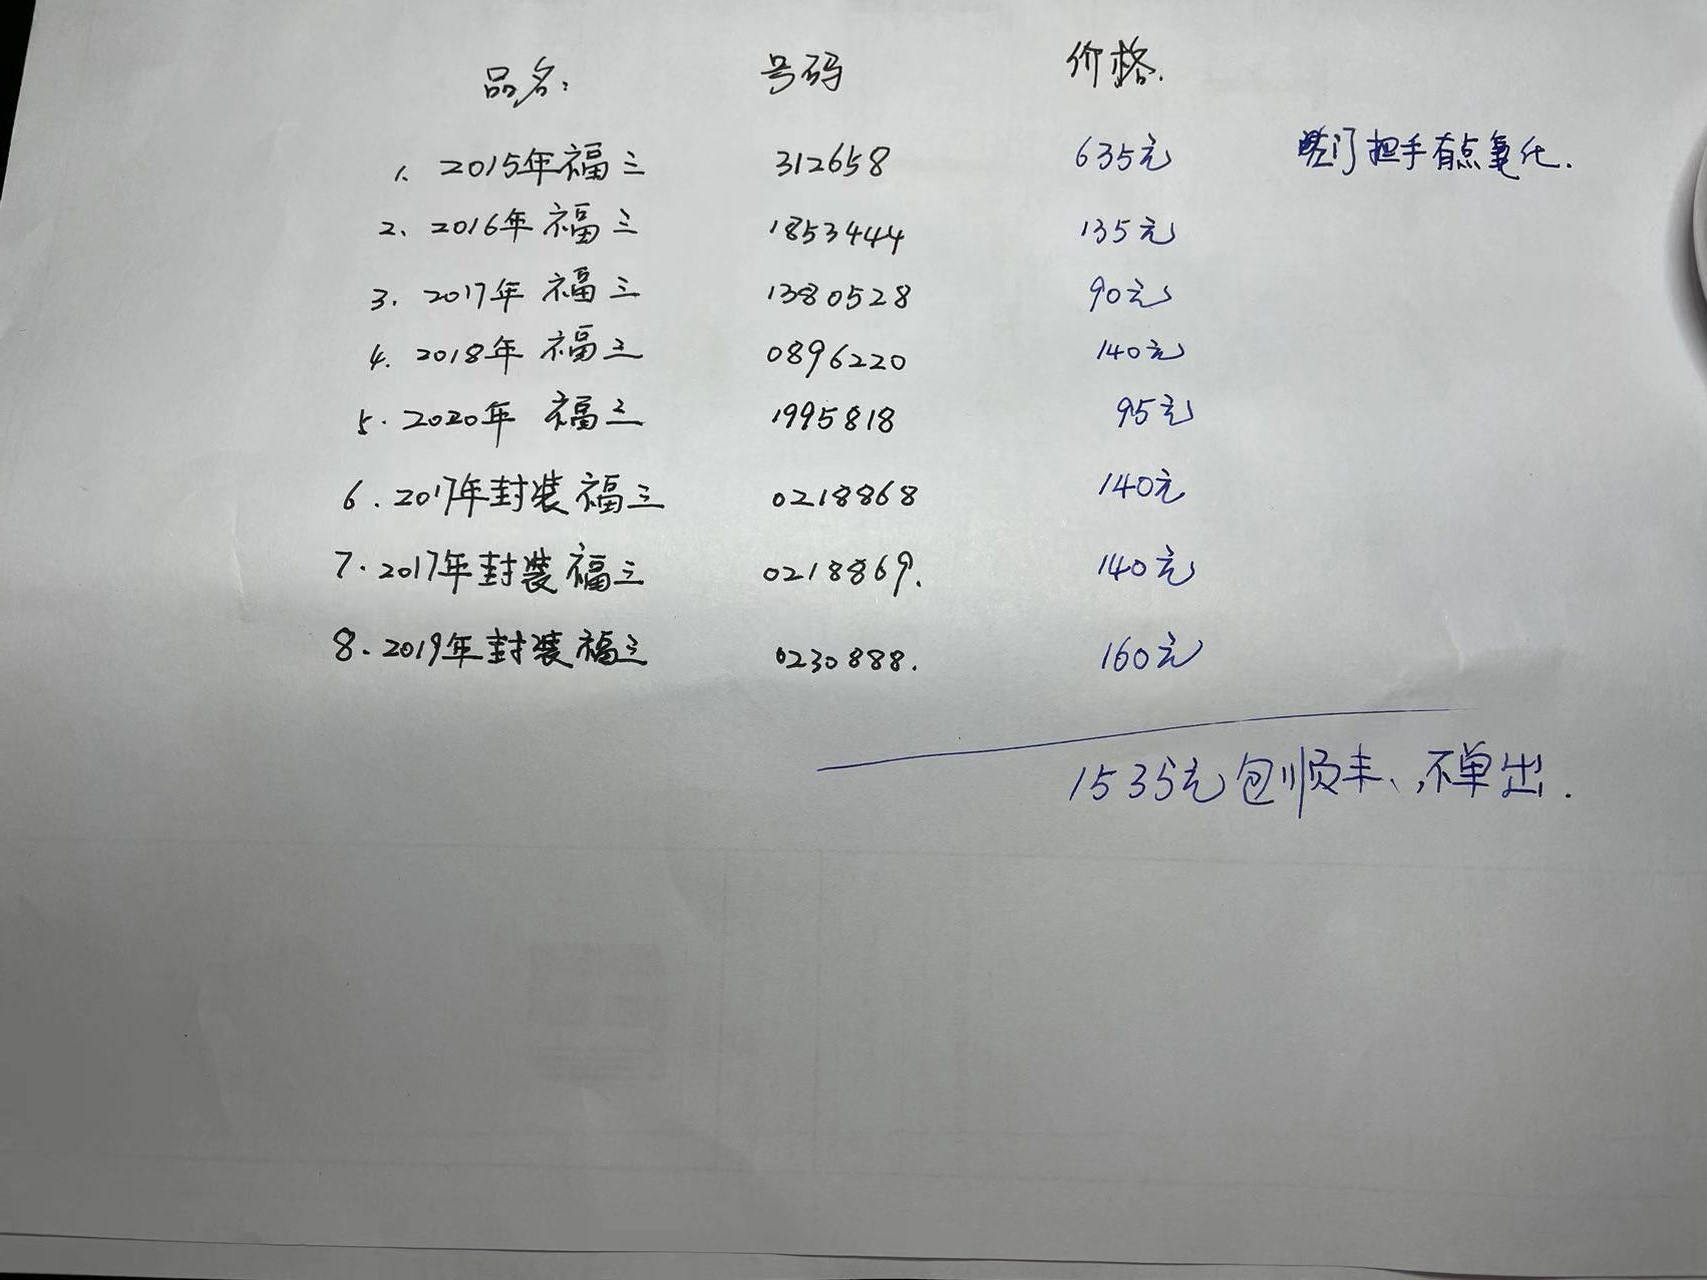 品名: 号码 价格.
1. 2015年福三 312658 635元 门把手有点氧化.
2、2016年福三 1853444 135元
3. 2017年福三 1380528 90元
4. 2018年福三 0896220 140元
5. 2020年福三 1995818 95元
6. 2017年封装福三 0218868 140元
7. 2017年封装福三 0218869. 140元
8. 2019年封装福三 0230888. 160元
1535元包顺丰、,不单出.